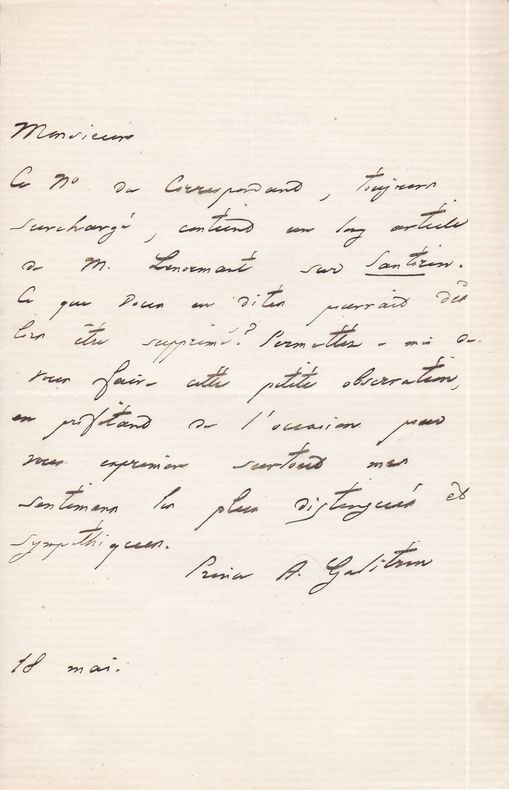 Monsieur
Ce No du Correspondant, toujours
surchargé, contient un long article
de M. Lenormant sur Santorin.
Ce que vous en dites pourrait dès
lors être supprimé? Permettez-moi de
vous faire cette petite observation,
en profitant de l'occasion pour
vous exprimer surtout mes
sentimens les plus distingués et
sympathiques.
Prince A. Galitzin
18 mai.